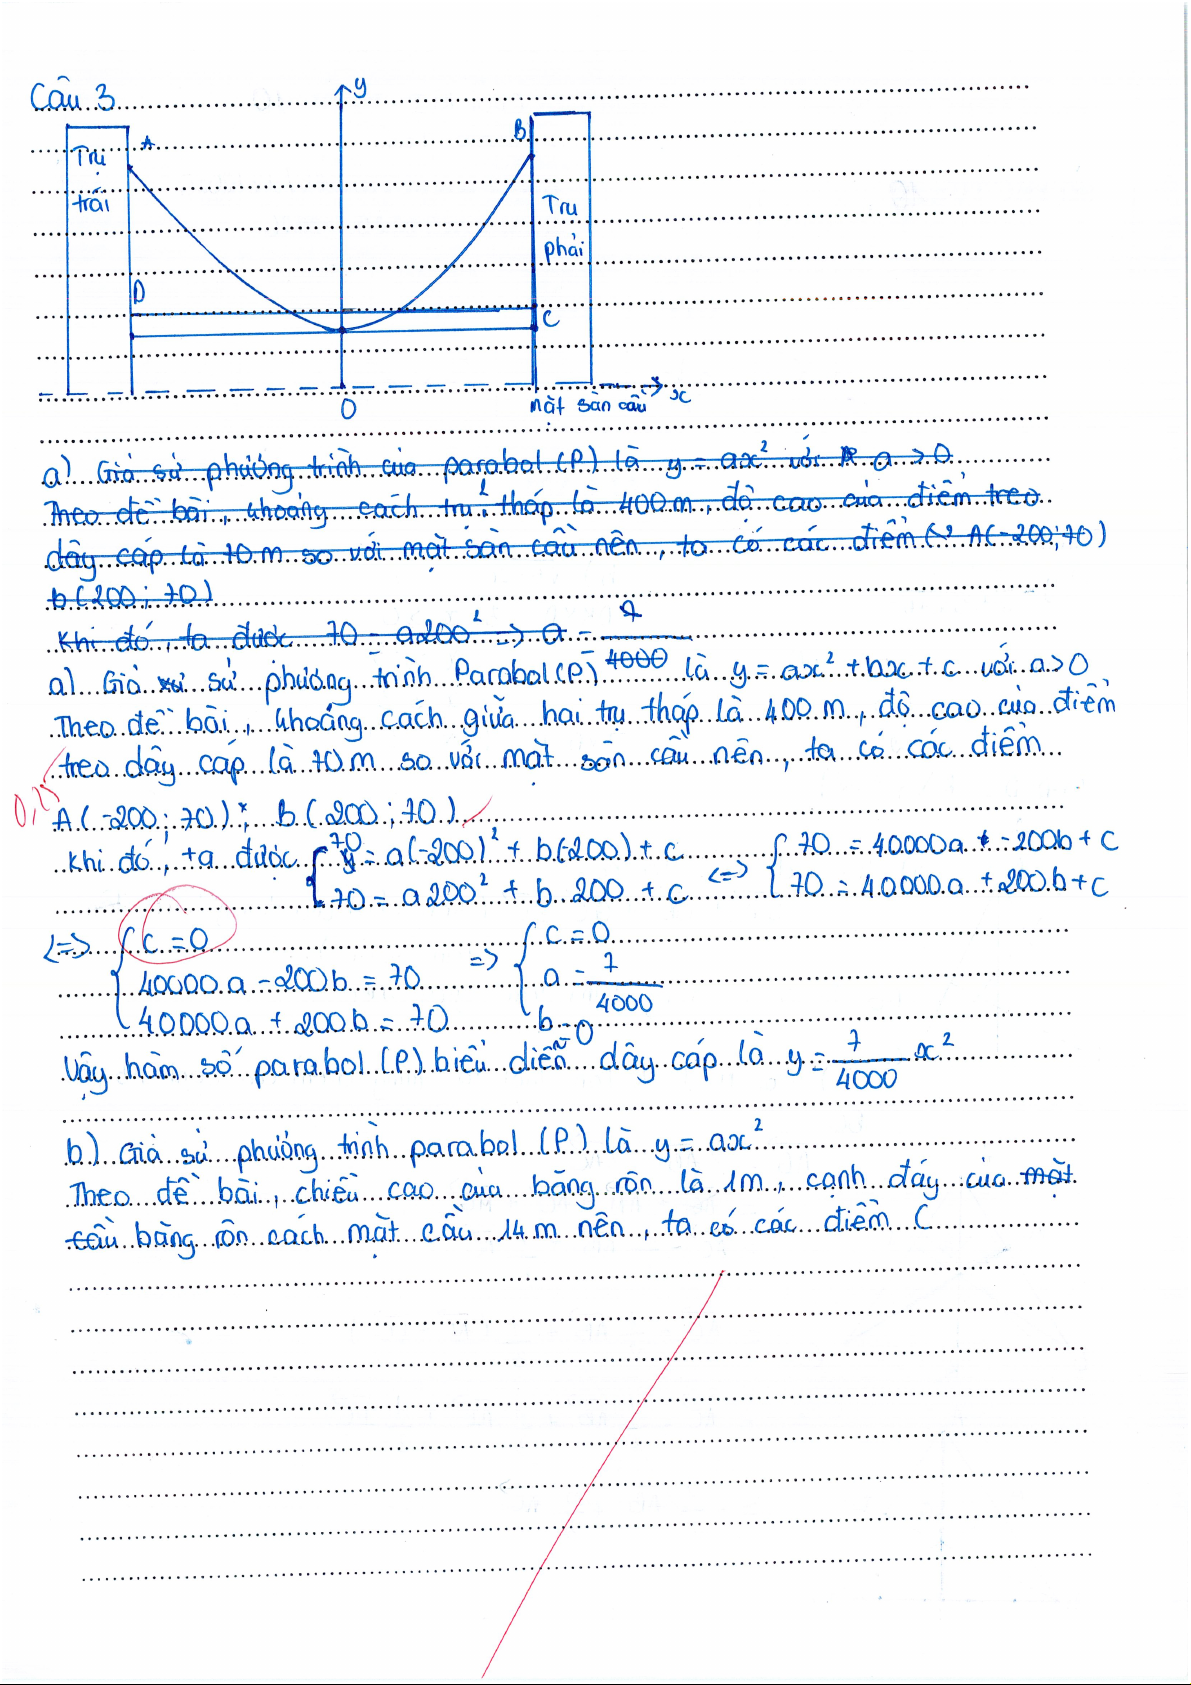 Câu 3
y
A
B
Trụ
trái
Trụ
phải
D
C
O
mặt sàn cầu
x
a) Giả sử phương trình của parabol (P) là y = ax² với a > 0
Theo đề bài, khoảng cách trụ tháp là 400 m, độ cao của điểm treo
dây cáp là 70 m so với mặt sàn cầu nên, ta có các điểm A(-200; 70)
b(200; 70)
Khi đó, ta được 70 = a200² => a = 7/4000
a) Giả sử phương trình Parabol (P) là y = ax² + bx + c với a > 0
Theo đề bài, khoảng cách giữa hai trụ tháp là 400 m, độ cao của điểm
treo dây cáp là 70 m so với mặt sàn cầu nên, ta có các điểm
0,25
A(-200; 70); b(200; 70)
Khi đó, ta được { 70 = a(-200)² + b(-200) + c <=> { 70 = 40000a - 200b + c
70 = a200² + b.200 + c 70 = 40000.a + 200.b + c
<=> { c = 0 => { c = 0
40000.a - 200b = 70 a = 7/4000
40000a + 200b = 70 b = 0
Vậy hàm số parabol (P) biểu diễn dây cáp là y = 7/4000 x²
b) Giả sử phương trình parabol (P) là y = ax²
Theo đề bài, chiều cao của băng rôn là 1m, cạnh đáy của mặt
cầu băng rôn cách mặt cầu 14 m nên, ta có các điểm C